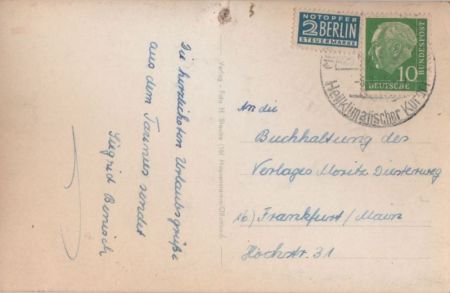 Die herzlichsten Urlaubsgrüße
aus dem Taunus sendet
Siegrid
NOTOPFER
2 BERLIN
STEUERMARKE
10
DEUTSCHE
BUNDESPOST
Heilklimatischer Kur
An die
Buchhaltung des
Verlages Moritz Diesterweg
16) Frankfurt/Main
Hochstr. 31